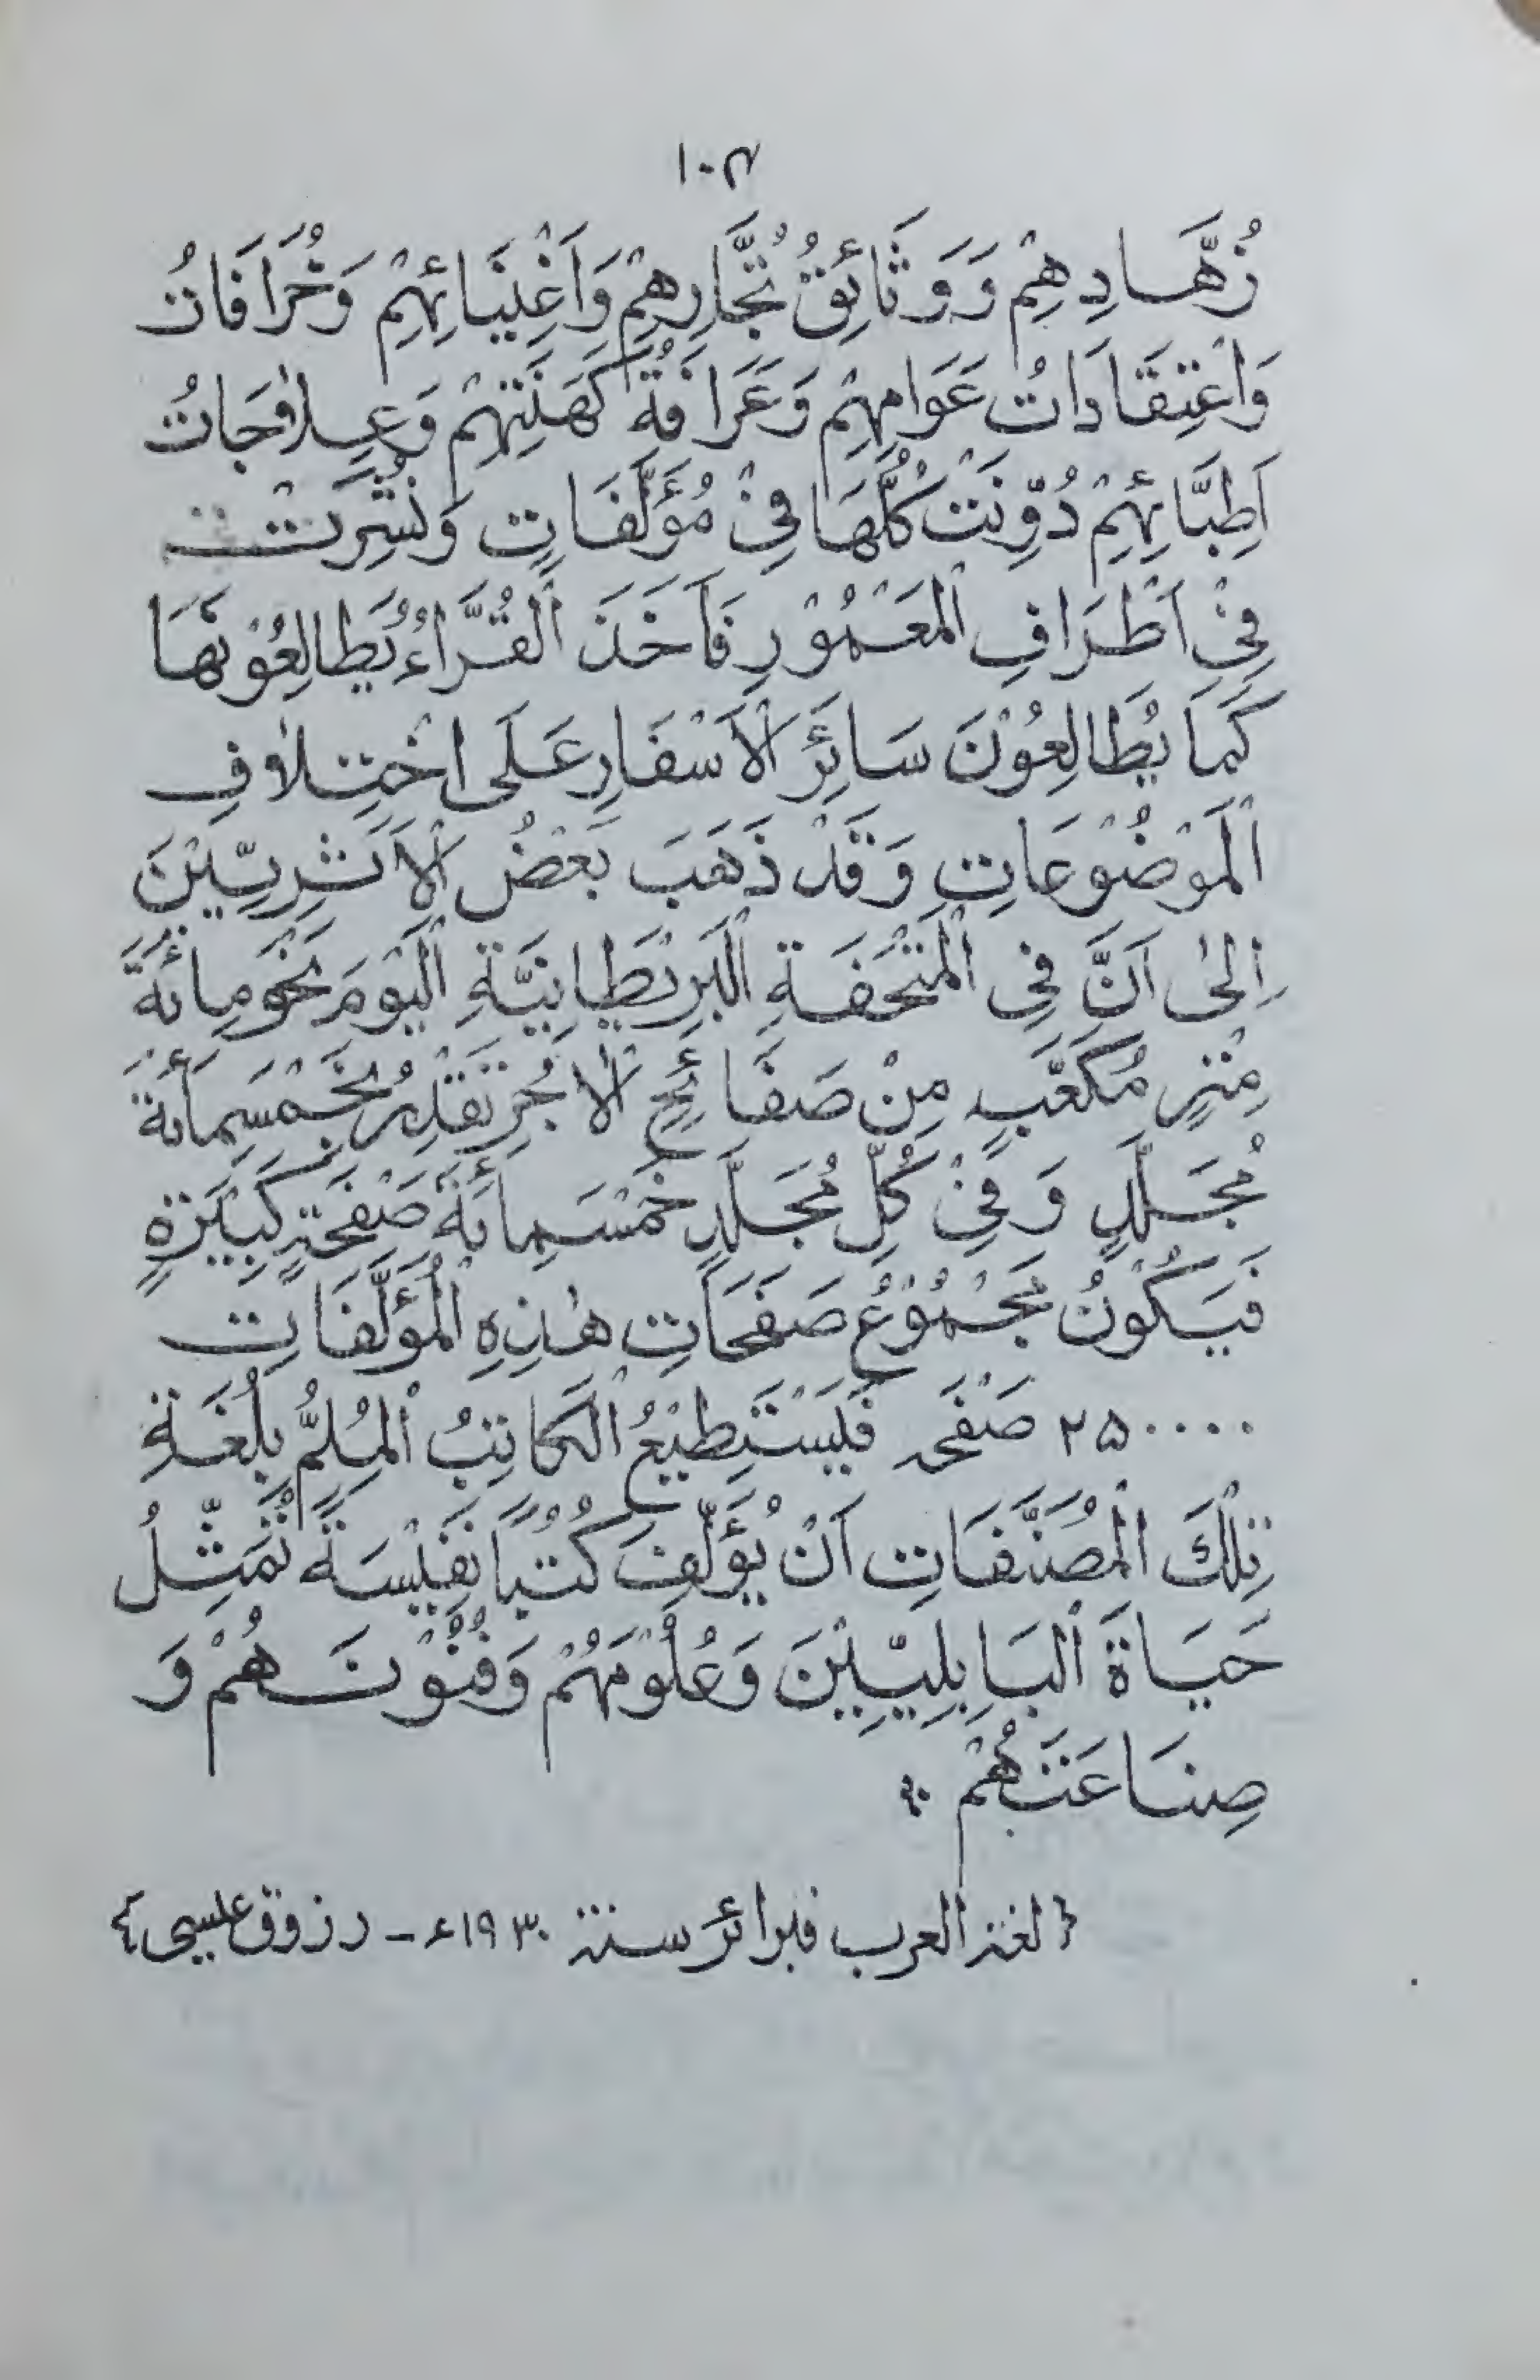 ١٠٣
زُهَّادِهِمْ وَوَثَائِقُ تُجَّارِهِمْ وَاَغْنِيَائِهِمْ وَخُرَافَاتُ
وَاعْتِقَادَاتُ عَوَامِهِمْ وَعَرَافَةُ كَهَنَتِهِمْ وَعِلَاجَاتُ
اَطِبَّائِهِمْ دُوِّنَتْ كُلُّهَا فِيْ مُؤَلَّفَاتٍ وَنُشِرَتْ
فِيْ اَطْرَافِ الْمَعْمُوْرِ فَاَخَذَ الْقُرَّاءُ يُطَالِعُوْنَهَا
كَمَا يُطَالِعُوْنَ سَائِرَ الْاَسْفَارِ عَلَى اخْتِلَافِ
الْمَوْضُوْعَاتِ وَقَدْ ذَهَبَ بَعْضُ الْاَثَرِيِّيْنَ
اِلٰى اَنَّ فِي الْمَتْحَفَةِ الْبَرِيْطَانِيَّةِ الْيَوْمَ نَحْوَ مِائَةَ
مِتْرٍ مُكَعَّبٍ مِنْ صَفَائِحِ الْاٰجُرِ تَقْدِرُ بِخَمْسَمِائَةَ
مُجَلَّدٍ وَفِيْ كُلِّ مُجَلَّدٍ خَمْسَمِائَةَ صَفْحَةٍ كَبِيْرَةٍ
فَيَكُوْنُ مَجْمُوْعُ صَفَحَاتِ هٰذِهِ الْمُؤَلَّفَاتِ
٢٥٠٠٠٠ صَفْحَه فَيَسْتَطِيْعُ الْكَاتِبُ الْمُلِمُّ بِلُغَةِ
تِلْكَ الْمُصَنَّفَاتِ اَنْ يُؤَلِّفَ كُتُبًا نَفِيْسَةً تُمَثِّلُ
حَيَاةَ الْبَابِلِيِّيْنَ وَعُلُوْمَهُمْ وَفُنُوْنَهُمْ وَ
صِنَاعَتَهُمْ ؞
{لغة العرب فبرائر سنة ١٩٣٠ء - رزوق عيسى}